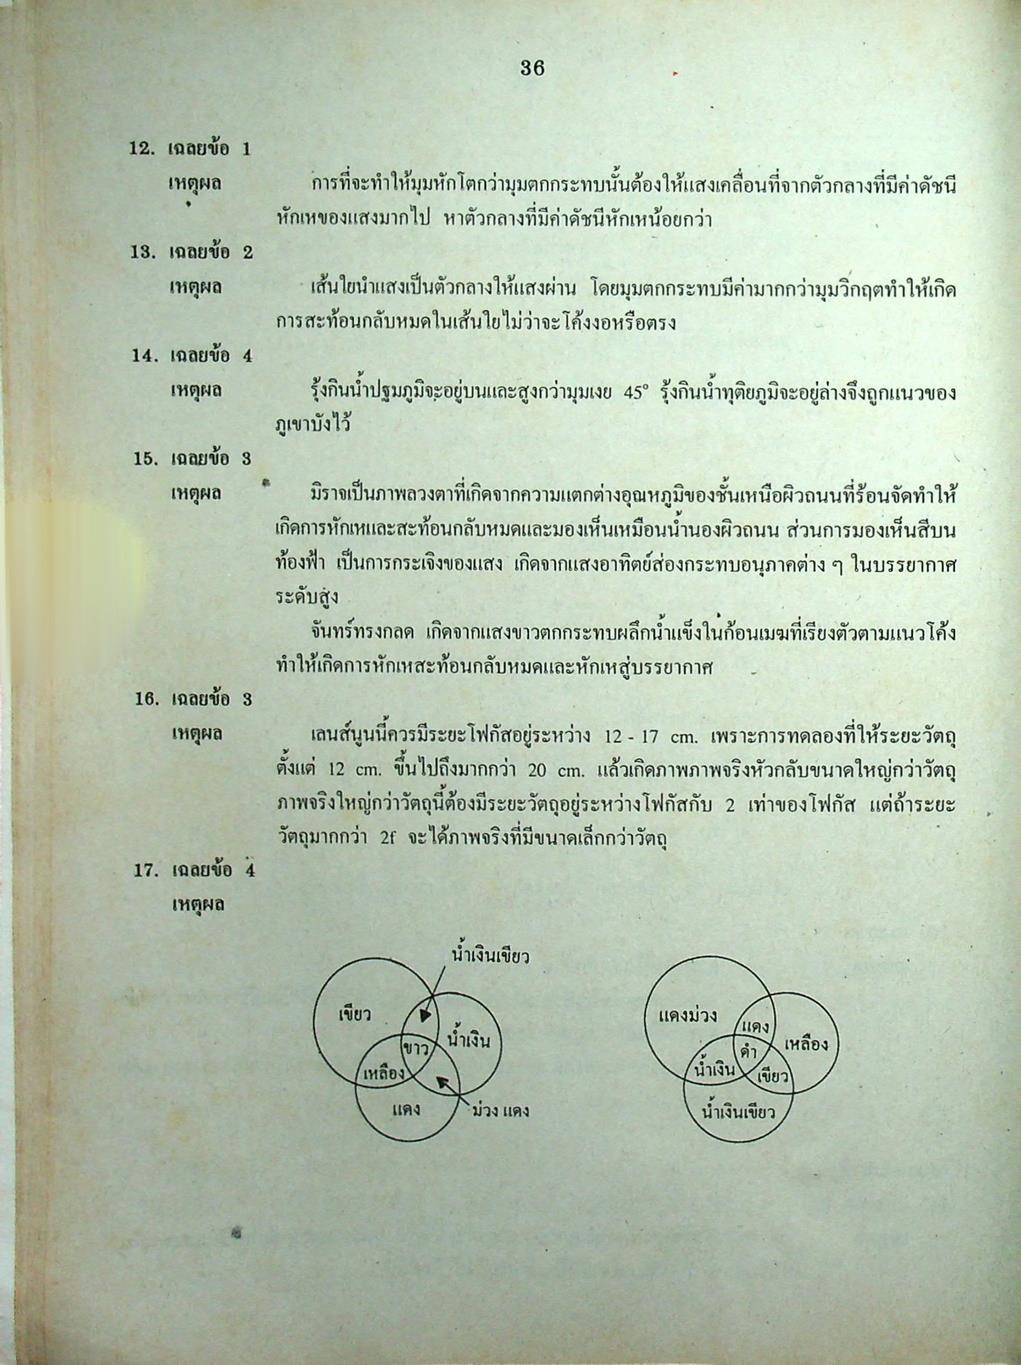 36
12. เฉลยข้อ 1
เหตุผล การที่จะทำให้มุมหักโตกว่ามุมตกกระทบนั้นต้องให้แสงเคลื่อนที่จากตัวกลางที่มีค่าดัชนี
หักเหของแสงมากไป หาตัวกลางที่มีค่าดัชนีหักเหน้อยกว่า
13. เฉลยข้อ 2
เหตุผล เส้นใยนำแสงเป็นตัวกลางให้แสงผ่าน โดยมุมตกกระทบมีค่ามากกว่ามุมวิกฤตทำให้เกิด
การสะท้อนกลับหมดในเส้นใยไม่ว่าจะโค้งงอหรือตรง
14. เฉลยข้อ 4
เหตุผล รุ้งกินน้ำปฐมภูมิจะอยู่บนและสูงกว่ามุมเงย 45° รุ้งกินน้ำทุติยภูมิจะอยู่ล่างจึงถูกแนวของ
ภูเขาบังไว้
15. เฉลยข้อ 3
เหตุผล มิราจเป็นภาพลวงตาที่เกิดจากความแตกต่างอุณหภูมิของชั้นเหนือผิวถนนที่ร้อนจัดทำให้
เกิดการหักเหและสะท้อนกลับหมดและมองเห็นเหมือนน้ำนองผิวถนน ส่วนการมองเห็นสีบน
ท้องฟ้า เป็นการกระเจิงของแสง เกิดจากแสงอาทิตย์ส่องกระทบอนุภาคต่าง ๆ ในบรรยากาศ
ระดับสูง
จันทร์ทรงกลด เกิดจากแสงขาวตกกระทบผลึกน้ำแข็งในก้อนเมฆที่เรียงตัวตามแนวโค้ง
ทำให้เกิดการหักเหสะท้อนกลับหมดและหักเหสู่บรรยากาศ
16. เฉลยข้อ 3
เหตุผล เลนส์นูนนี้ควรมีระยะโฟกัสอยู่ระหว่าง 12 - 17 cm. เพราะการทดลองที่ให้ระยะวัตถุ
ตั้งแต่ 12 cm. ขึ้นไปถึงมากกว่า 20 cm. แล้วเกิดภาพภาพจริงหัวกลับขนาดใหญ่กว่าวัตถุ
ภาพจริงใหญ่กว่าวัตถุนี้ต้องมีระยะวัตถุอยู่ระหว่างโฟกัสกับ 2 เท่าของโฟกัส แต่ถ้าระยะ
วัตถุมากกว่า 2f จะได้ภาพจริงที่มีขนาดเล็กกว่าวัตถุ
17. เฉลยข้อ 4
เหตุผล
น้ำเงินเขียว
เขียว
น้ำเงิน
ขาว
เหลือง
แดง
ม่วง แดง
แดงม่วง
แดง
เหลือง
ดำ
น้ำเงิน
เขียว
น้ำเงินเขียว